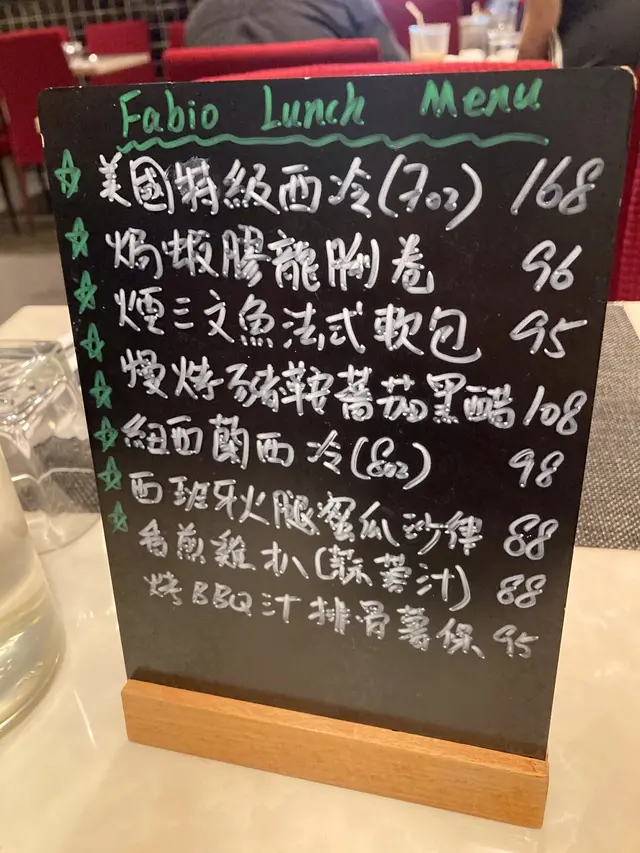 Fabio Lunch Menu
美國特級西冷(7oz) 168
焗板膠龍脷卷 96
煙三文魚法式軟包 95
慢烤豬鞍蕃茄黑醋 108
紐西蘭西冷(8oz) 98
西班牙火腿蜜瓜沙律 88
香煎雞扒(蒜蓉汁) 88
烤BBQ汁排骨薯條 95